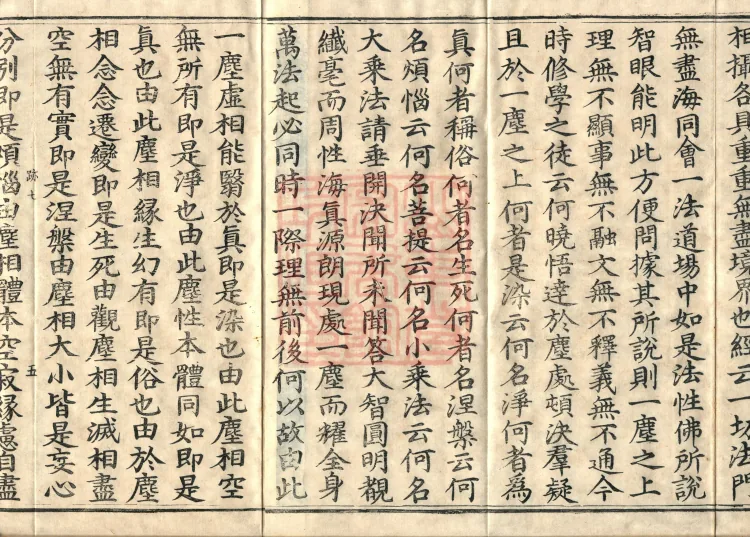 相攝各具重重無盡境界也經云一切法門
無盡海同會一法道場中如是法性佛所說
智眼能明此方便問據其所說則一塵之上
理無不顯事無不融文無不釋義無不通今
時修學之徒云何曉悟達於塵處頓決羣疑
且於一塵之上何者是染云何名淨何者為
眞何者稱俗何者名生死何者名涅槃云何
名煩惱云何名菩提云何名小乘法云何名
大乘法請垂開決聞所未聞答大智圓明覩
纖毫而周性海眞源朗現處一塵而耀全身
萬法起必同時一際理無前後何以故由此
一塵虛相能翳於眞即是染也由此塵相空
無所有即是淨也由此塵性本體同如即是
眞也由此塵相緣生幻有即是俗也由於塵
相念念遷變即是生死由觀塵相生滅相盡
空無有實即是涅槃由塵相大小皆是妄心
跡七 五
分別即是煩惱由塵相體本空寂緣慮自盡